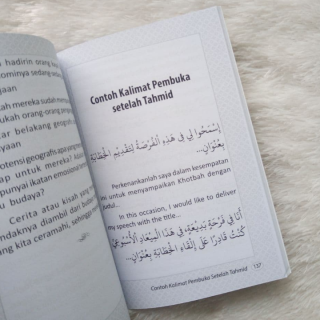 hadirin orang
ominya sedang
yaan
mereka sudah
ukah orang-orang
ar belakang geografi
yaan
potensi geografis apa yang
up untuk mereka? Apa
punyai ikatan emosional
u budaya?
Cerita atau kisah yang
ndaknya diambil dari
ng kita ceramahi, sehingga
Contoh Kalimat Pembuka
setelah Tahmid
إِسْمَحُوْا لِي فِي هَذِهِ الْفُرْصَةِ لِتَقْدِيْمِ الْخِطَابَةِ
بِعُنْوَانِ...
Perkenankanlah saya dalam kesempatan
ini untuk menyampaikan Khotbah dengan
judul...
In this occasion, I would like to deliver
my speech with the title...
أَنَا فِي فَرْحَةٍ بَدِيْعَةٍ فِي هَذَا الْمِيْعَادِ الْأُسْبُوْعِيِّ
كُنْتُ قَادِرًا عَلَى إِلْقَاءِ الْخِطَابَةِ بِعُنْوَانِ...
Contoh Kalimat Pembuka Setelah Tahmid 137